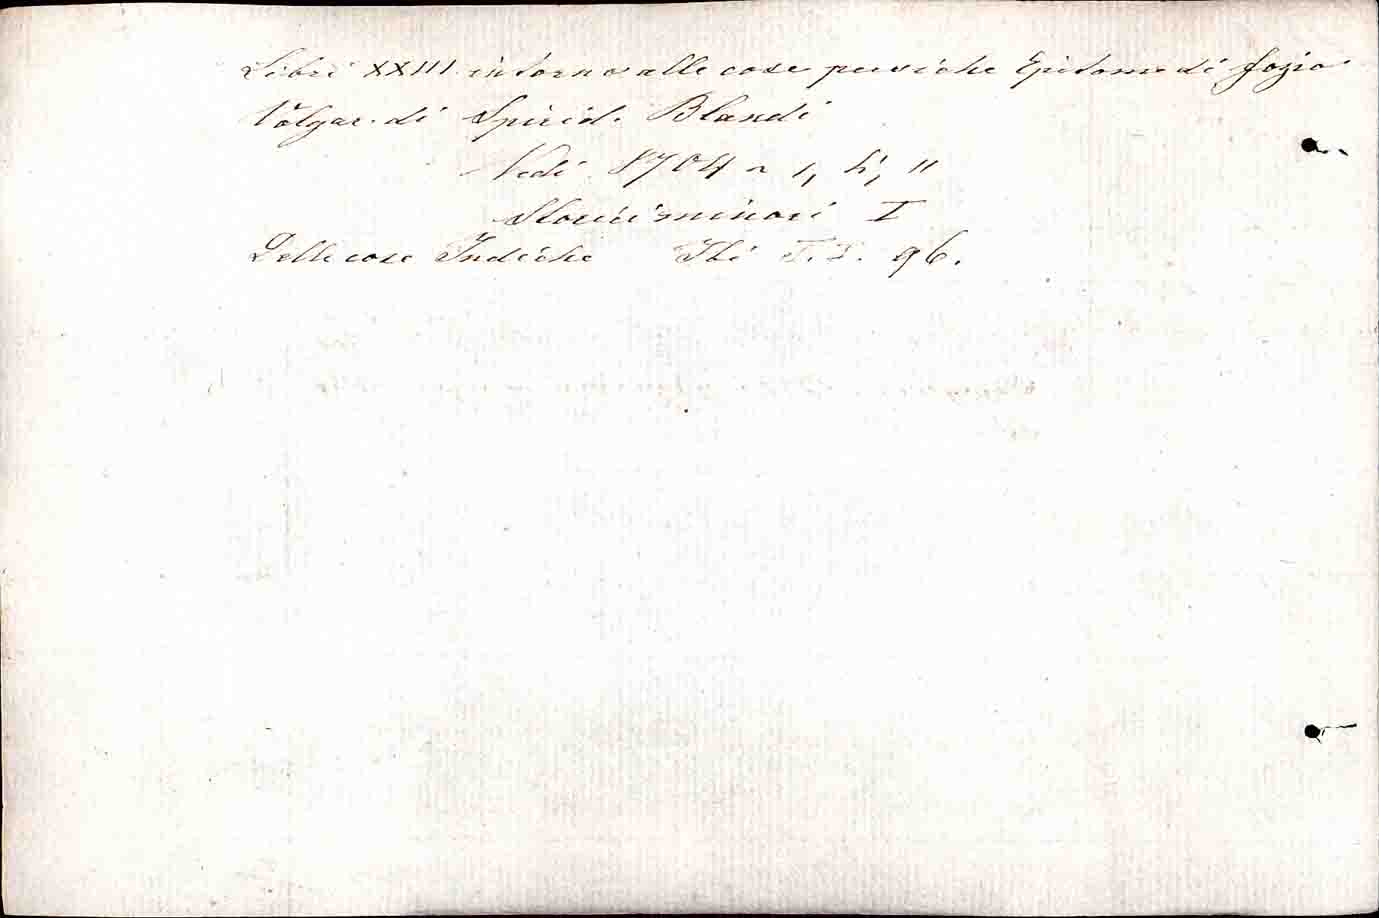 Libri XXIII intorno alle cose persiche Epitome di Fozio
Volgar. di Spirid. Blandi
Vedi 8704 ~ 1, h, 11
Storici minori I
Delle cose Indiche Ibi T. I. 96.